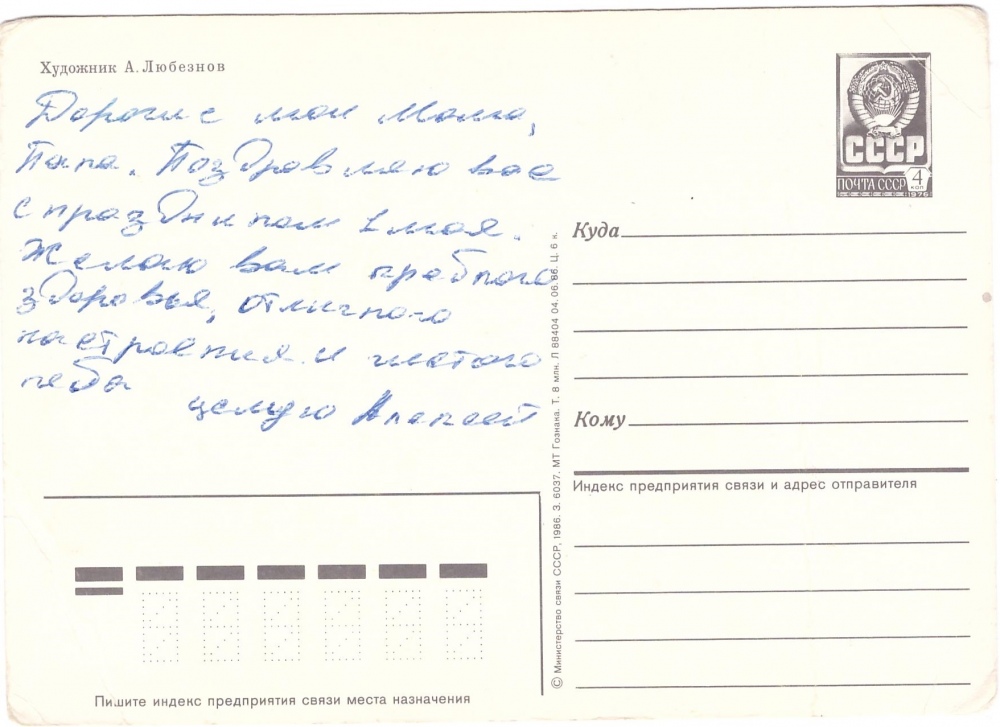 Художник А. Любезнов
Дорогие мои Мама,
Папа. Поздравляю вас
с праздником 1 мая.
Желаю вам крепкого
здоровья, отличного
настроения и чистого
неба
целую Алексей
СССР
ПОЧТА СССР 4 КОП
1976
Куда
Кому
Индекс предприятия связи и адрес отправителя
© Министерство связи СССР, 1986. З. 6037. МТ Гознака. Т. 8 млн. Л 88404 04.06.86. Ц. 6 к.
Пишите индекс предприятия связи места назначения